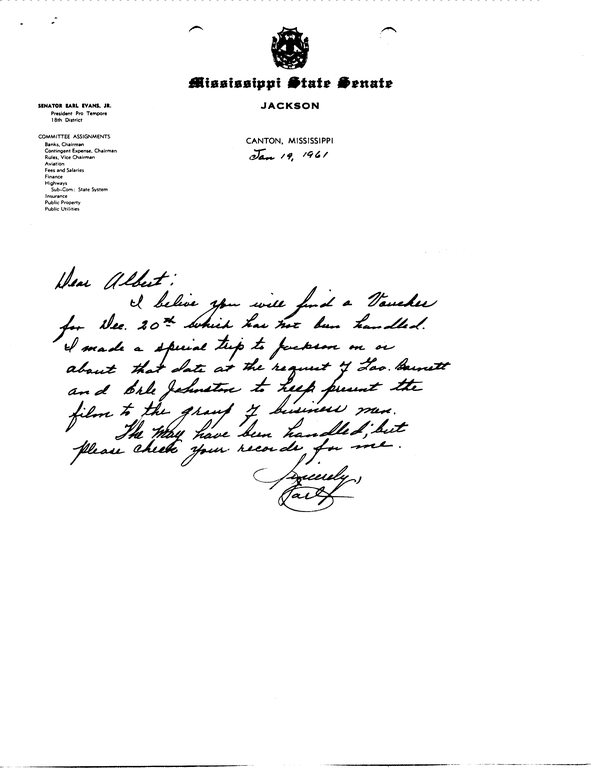 Mississippi State Senate
JACKSON
SENATOR EARL EVANS, JR.
President Pro Tempore
18th District
COMMITTEE ASSIGNMENTS
Banks, Chairman
Contingent Expense, Chairman
Rules, Vice Chairman
Aviation
Fees and Salaries
Finance
Highways
Sub-Com: State System
Insurance
Public Property
Public Utilities
CANTON, MISSISSIPPI
Jan 19, 1961
Dear Albert:
I belive you will find a Voucher
for Dec. 20th which has not bun handled.
I made a special trip to Jackson on or
about that date at the request of Gov. Barnett
and Erle Johnston to help present the
film to the group of business men.
The may have been handled, but
please check your records for me.
Sincerely,
Earl